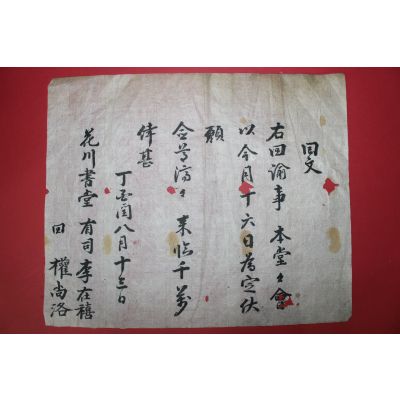 回文
右回諭事 本堂々會
以今月十六日爲定伏
願
僉尊濟々 來臨千萬
倖甚
丁酉閏八月十三日
花川書堂 有司 李在禧
回 權尚洛